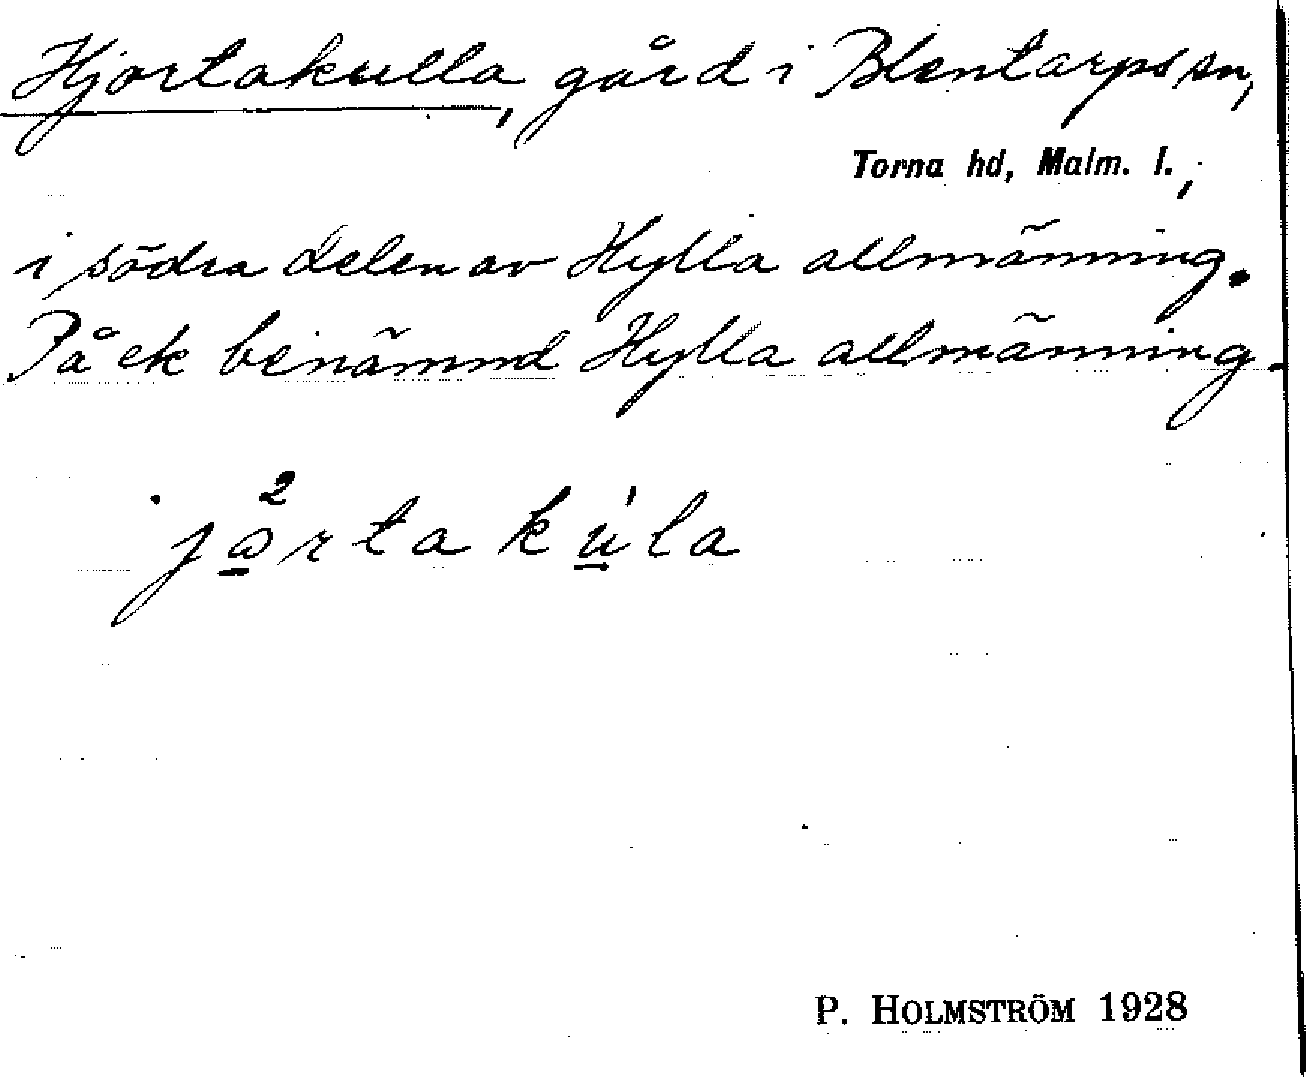 Hjortakulla, gård i Blentarps sn,
Torna hd, Malm. l.,
i södra delen av Hylla allmänning.
På ek benämnd Hylla allmänning.
jårtakúla
P. HOLMSTRÖM 1928